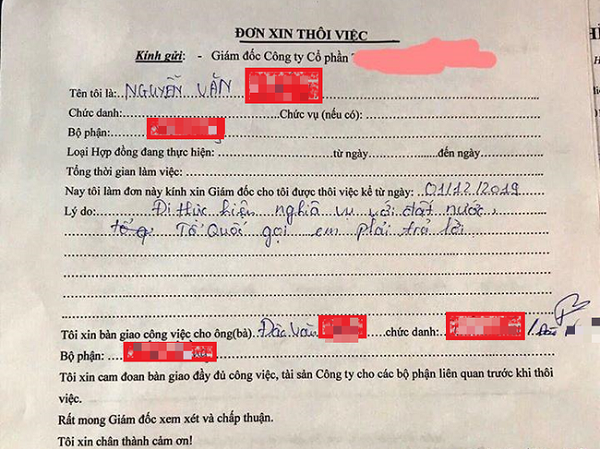 ĐƠN XIN THÔI VIỆC
Kính gửi: - Giám đốc Công ty Cổ phần
Tên tôi là: NGUYỄN VĂN
Chức danh: Chức vụ (nếu có):
Bộ phận:
Loại Hợp đồng đang thực hiện: từ ngày đến ngày
Tổng thời gian làm việc:
Nay tôi làm đơn này kính xin Giám đốc cho tôi được thôi việc kể từ ngày: 01/12/2019
Lý do: Đi thực hiện nghĩa vụ với đất nước,
Tổ Quốc gọi em phải trả lời.
Tôi xin bàn giao công việc cho ông(bà) Văn chức danh:
Bộ phận:
Tôi xin cam đoan bàn giao đầy đủ công việc, tài sản Công ty cho các bộ phận liên quan trước khi thôi
việc.
Rất mong Giám đốc xem xét và chấp thuận.
Tôi xin chân thành cảm ơn!